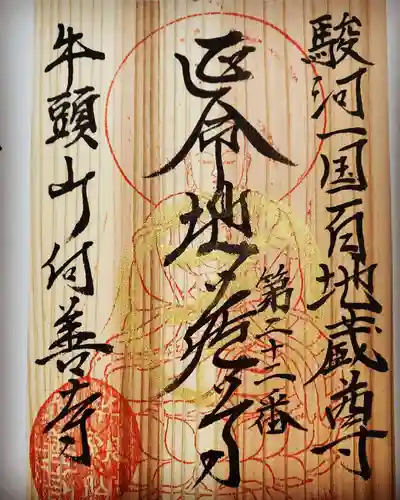 駿河一国百地蔵尊
第二十二番
延命地蔵尊
牛頭山何善寺